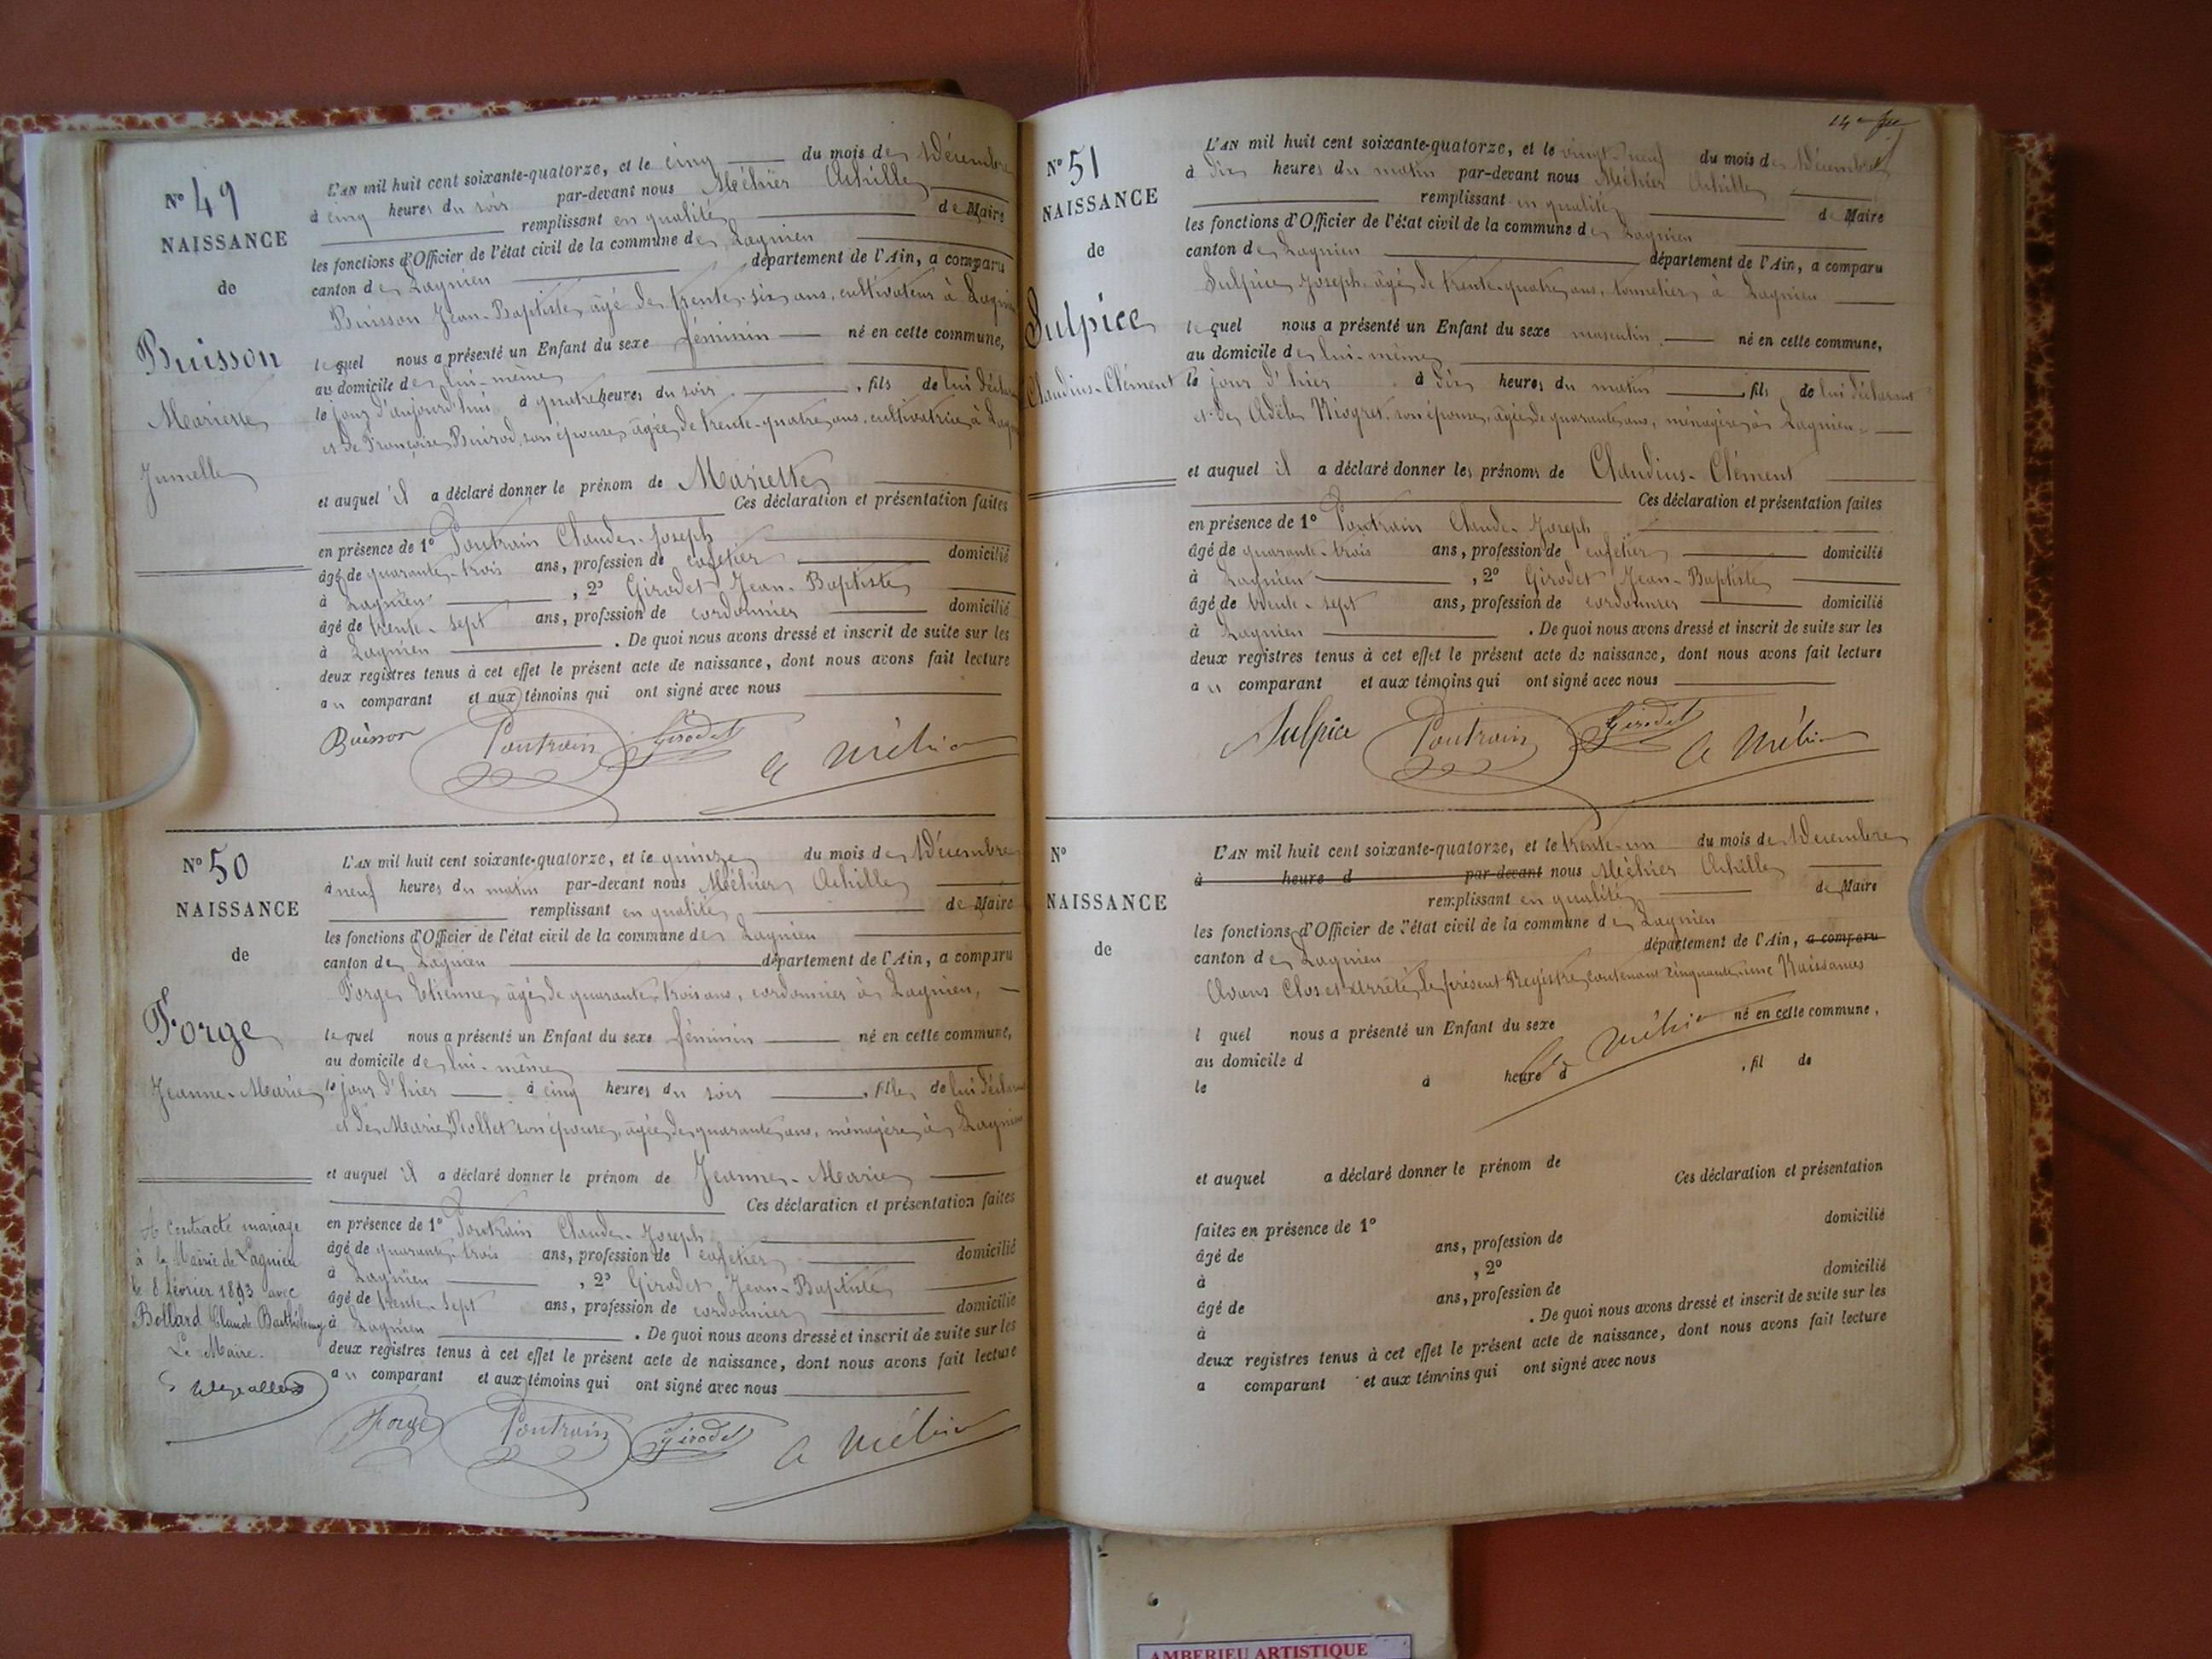 N° 49
NAISSANCE
de
Buisson
Mariette
Jumelle
L'AN mil huit cent soixante-quatorze, et le cinq du mois de Décembre
à cinq heures du soir par-devant nous Méhier Achille
remplissant en qualité de Maire
les fonctions d'Officier de l'état civil de la commune de Lagnieu
canton de Lagnieu département de l'Ain, a comparu
Buisson Jean-Baptiste, âgé de trente-six ans, cultivateur à Lagnieu
lequel nous a présenté un Enfant du sexe féminin né en cette commune,
au domicile de lui-même
le jour d'aujourd'hui à quatre heures du soir , fils de lui déclarant
et de Françoise son épouse, âgée de trente-quatre ans, cultivatrice à Lagnieu
et auquel il a déclaré donner le prénom de Mariette
Ces déclaration et présentation faites
en présence de 1° Poutrain Claude-Joseph
âgé de quarante-trois ans, profession de cafetier domicilié
à Lagnieu , 2° Girodet Jean-Baptiste
âgé de trente-sept ans, profession de cordonnier domicilié
à Lagnieu . De quoi nous avons dressé et inscrit de suite sur les
deux registres tenus à cet effet le présent acte de naissance, dont nous avons fait lecture
au comparant et aux témoins qui ont signé avec nous
Buisson Poutrain Girodet A Méhier
N° 50
NAISSANCE
de
Forge
Jeanne-Marie
L'AN mil huit cent soixante-quatorze, et le quinze du mois de Décembre
à neuf heures du matin par-devant nous Méhier Achille
remplissant en qualité de Maire
les fonctions d'Officier de l'état civil de la commune de Lagnieu
canton de Lagnieu département de l'Ain, a comparu
Forge Etienne, âgé de quarante-trois ans, cordonnier à Lagnieu,
lequel nous a présenté un Enfant du sexe féminin né en cette commune,
au domicile de lui-même
le jour d'hier à cinq heures du soir , fille de lui déclarant
et de Marie Rollet son épouse, âgée de quarante ans, ménagère à Lagnieu
et auquel il a déclaré donner le prénom de Jeanne-Marie
Ces déclaration et présentation faites
en présence de 1° Poutrain Claude-Joseph
âgé de quarante-trois ans, profession de cafetier domicilié
à Lagnieu , 2° Girodet Jean-Baptiste
âgé de trente-sept ans, profession de cordonnier domicilié
à Lagnieu . De quoi nous avons dressé et inscrit de suite sur les
deux registres tenus à cet effet le présent acte de naissance, dont nous avons fait lecture
au comparant et aux témoins qui ont signé avec nous
Forge Poutrain Girodet A Méhier
A contracté mariage
à la Mairie de Lagnieu
le 8 février 1893 avec
Bollard Claude Barthélemy
Le Maire.
N° 51
NAISSANCE
de
Sulpice
Claudius-Clément
L'AN mil huit cent soixante-quatorze, et le vingt-neuf du mois de Décembre
à dix heures du matin par-devant nous Méhier Achille
remplissant en qualité de Maire
les fonctions d'Officier de l'état civil de la commune de Lagnieu
canton de Lagnieu département de l'Ain, a comparu
Sulpice Joseph, âgé de trente-quatre ans, tonnelier à Lagnieu
lequel nous a présenté un Enfant du sexe masculin né en cette commune,
au domicile de lui-même
le jour d'hier à dix heures du matin , fils de lui déclarant
et de Adèle son épouse, âgée de quarante ans, ménagère à Lagnieu
et auquel il a déclaré donner les prénoms de Claudius-Clément
Ces déclaration et présentation faites
en présence de 1° Poutrain Claude-Joseph
âgé de quarante-trois ans, profession de cafetier domicilié
à Lagnieu , 2° Girodet Jean-Baptiste
âgé de trente-sept ans, profession de cordonnier domicilié
à Lagnieu . De quoi nous avons dressé et inscrit de suite sur les
deux registres tenus à cet effet le présent acte de naissance, dont nous avons fait lecture
au comparant et aux témoins qui ont signé avec nous
Sulpice Poutrain Girodet A Méhier
N°
NAISSANCE
de
L'AN mil huit cent soixante-quatorze, et le trente-un du mois de Décembre
à heure d par-devant nous Méhier Achille
remplissant en qualité de Maire
les fonctions d'Officier de l'état civil de la commune de Lagnieu
canton de Lagnieu département de l'Ain, a comparu
Avons Clos et Arrêté le présent Registre contenant cinquante-une Naissances
l quel nous a présenté un Enfant du sexe né en cette commune,
A Méhier
au domicile d
le à heure d , fil de
et auquel a déclaré donner le prénom de
Ces déclaration et présentation
faites en présence de 1°
âgé de ans, profession de domicilié
à , 2°
âgé de ans, profession de domicilié
à . De quoi nous avons dressé et inscrit de suite sur les
deux registres tenus à cet effet le présent acte de naissance, dont nous avons fait lecture
a comparant et aux témoins qui ont signé avec nous
AMBERIEU ARTISTIQUE